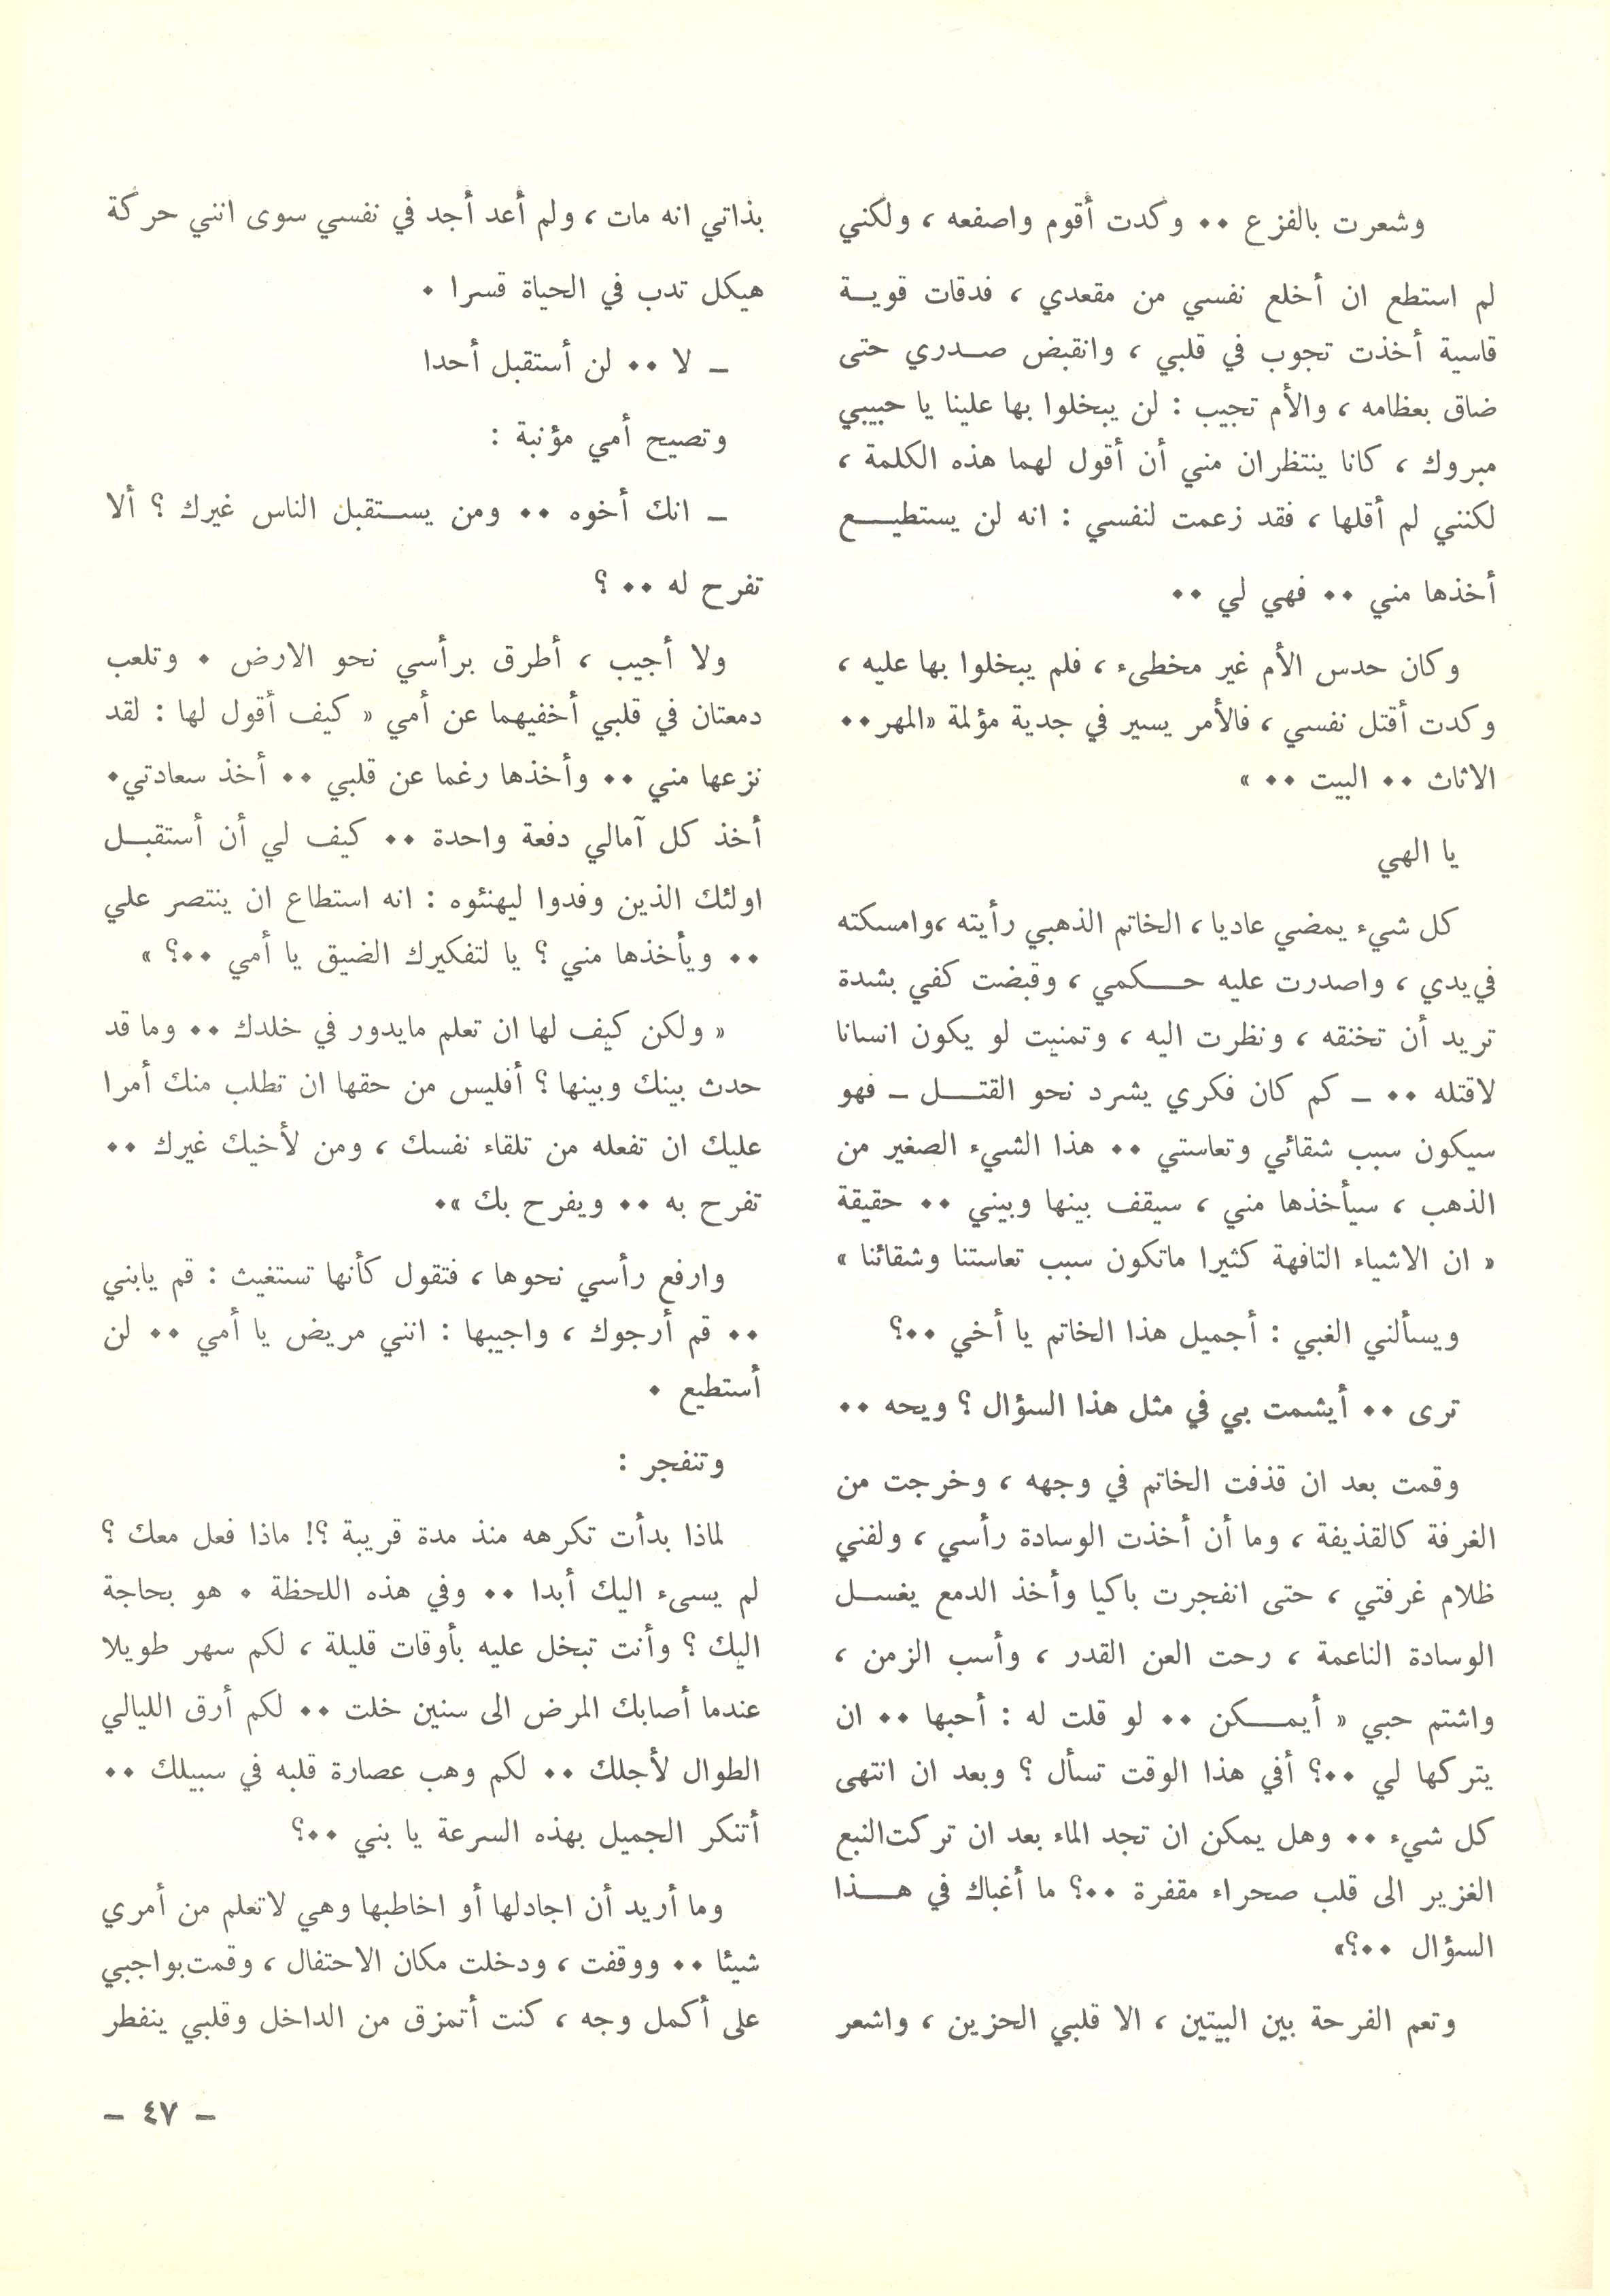 وشعرت بالفزع ٠٠ وكدت أقوم واصفعه ، ولكني
لم استطع ان أخلع نفسي من مقعدي ، فدقات قويـة
قاسية أخذت تجوب في قلبي ، وانقبض صـدري حتى
ضاق بعظامه ، والأم تجيب : لن يبخلوا بها علينا يا حبيبي
مبروك ، كانا ينتظران مني أن أقول لهما هذه الكلمة ،
لكنني لم أقلها ، فقد زعمت لنفسي : انه لن يستطيـع
أخذها مني ٠٠ فهي لي ٠٠
وكان حدس الأم غير مخطىء ، فلم يبخلوا بها عليه ،
وكدت أقتل نفسي ، فالأمر يسير في جدية مؤلمة «المهر ٠٠
الاثاث ٠٠ البيت ٠٠ »
يا الهي
كل شيء يمضي عاديا ، الخاتم الذهبي رأيته ،وامسكته
في يدي ، واصدرت عليه حـكمي ، وقبضت كفي بشدة
تريد أن تخنقه ، ونظرت اليه ، وتمنيت لو يكون انسانا
لاقتله ٠٠ ــ كم كان فكري يشرد نحو القتـل ــ فهو
سيكون سبب شقائي وتعاستي ٠٠ هذا الشيء الصغير من
الذهب ، سيأخذها مني ، سيقف بينها وبيني ٠٠ حقيقة
« ان الاشياء التافهة كثيرا ماتكون سبب تعاستنا وشقائنا »
ويسألني الغبي : أجميل هذا الخاتم يا أخي ٠٠؟
ترى ٠٠ أيشمت بي في مثل هذا السؤال ؟ ويحه ٠٠
وقمت بعد ان قذفت الخاتم في وجهه ، وخرجت من
الغرفة كالقذيفة ، وما أن أخذت الوسادة رأسي ، ولفني
ظلام غرفتي ، حتى انفجرت باكيا وأخذ الدمع يغسـل
الوسادة الناعمة ، رحت العن القدر ، وأسب الزمن ،
واشتم حبي « أيمـكن ٠٠ لو قلت له : أحبها ٠٠ ان
يتركها لي ٠٠؟ أفي هذا الوقت تسأل ؟ وبعد ان انتهى
كل شيء ٠٠ وهل يمكن ان تجد الماء بعد ان تركت النبع
الغزير الى قلب صحراء مقفرة ٠٠؟ ما أغباك في هـذا
السؤال ٠٠؟»
وتعم الفرحة بين البيتين ، الا قلبي الحزين ، واشعر
بذاتي انه مات ، ولم أعد أجد في نفسي سوى انني حركة
هيكل تدب في الحياة قسرا ٠
ــ لا ٠٠ لن أستقبل أحدا
وتصيح أمي مؤنبة :
ــ انك أخوه ٠٠ ومن يسـتقبل الناس غيرك ؟ ألا
تفرح له ٠٠ ؟
ولا أجيب ، أطرق برأسي نحو الارض ٠ وتلعب
دمعتان في قلبي أخفيهما عن أمي « كيف أقول لها : لقد
نزعها مني ٠٠ وأخذها رغما عن قلبي ٠٠ أخذ سعادتي٠
أخذ كل آمالي دفعة واحدة ٠٠ كيف لي أن أستقبـل
اولئك الذين وفدوا ليهنئوه : انه استطاع ان ينتصر علي
٠٠ ويأخذها مني ؟ يا لتفكيرك الضيق يا أمي ٠٠؟ »
« ولكن كيف لها ان تعلم مايدور في خلدك ٠٠ وما قد
حدث بينك وبينها ؟ أفليس من حقها ان تطلب منك أمرا
عليك ان تفعله من تلقاء نفسك ، ومن لأخيك غيرك ٠٠
تفرح به ٠٠ ويفرح بك »٠
وارفع رأسي نحوها ، فتقول كأنها تستغيث : قم يابني
٠٠ قم أرجوك ، واجيبها : انني مريض يا أمي ٠٠ لن
أستطيع ٠
وتنفجر :
لماذا بدأت تكرهه منذ مدة قريبة ؟! ماذا فعل معك ؟
لم يسىء اليك أبدا ٠٠ وفي هذه اللحظة ٠ هو بحاجة
اليك ؟ وأنت تبخل عليه بأوقات قليلة ، لكم سهر طويلا
عندما أصابك المرض الى سنين خلت ٠٠ لكم أرق الليالي
الطوال لأجلك ٠٠ لكم وهب عصارة قلبه في سبيلك ٠٠
أتنكر الجميل بهذه السرعة يا بني ٠٠؟
وما أريد أن اجادلها أو اخاطبها وهي لاتعلم من أمري
شيئا ٠٠ ووقفت ، ودخلت مكان الاحتفال ، وقمت بواجبي
على أكمل وجه ، كنت أتمزق من الداخل وقلبي ينفطر
ــ ٤٧ ــ